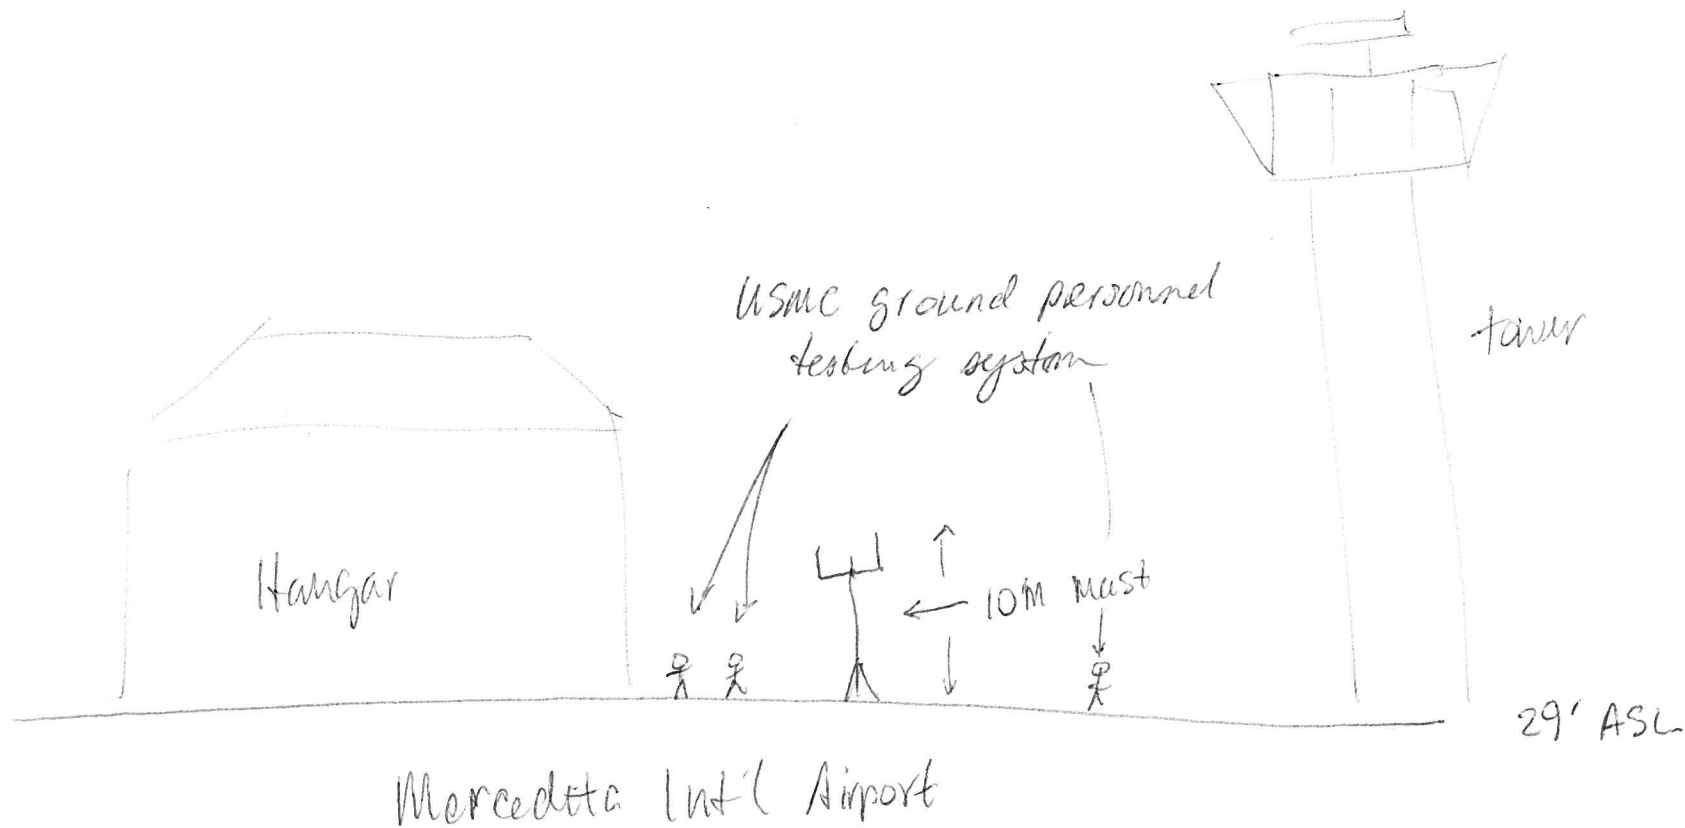 USMC ground personnel
testing system
tower
Hangar
10M mast
29' ASL
Mercedita Int'l Airport